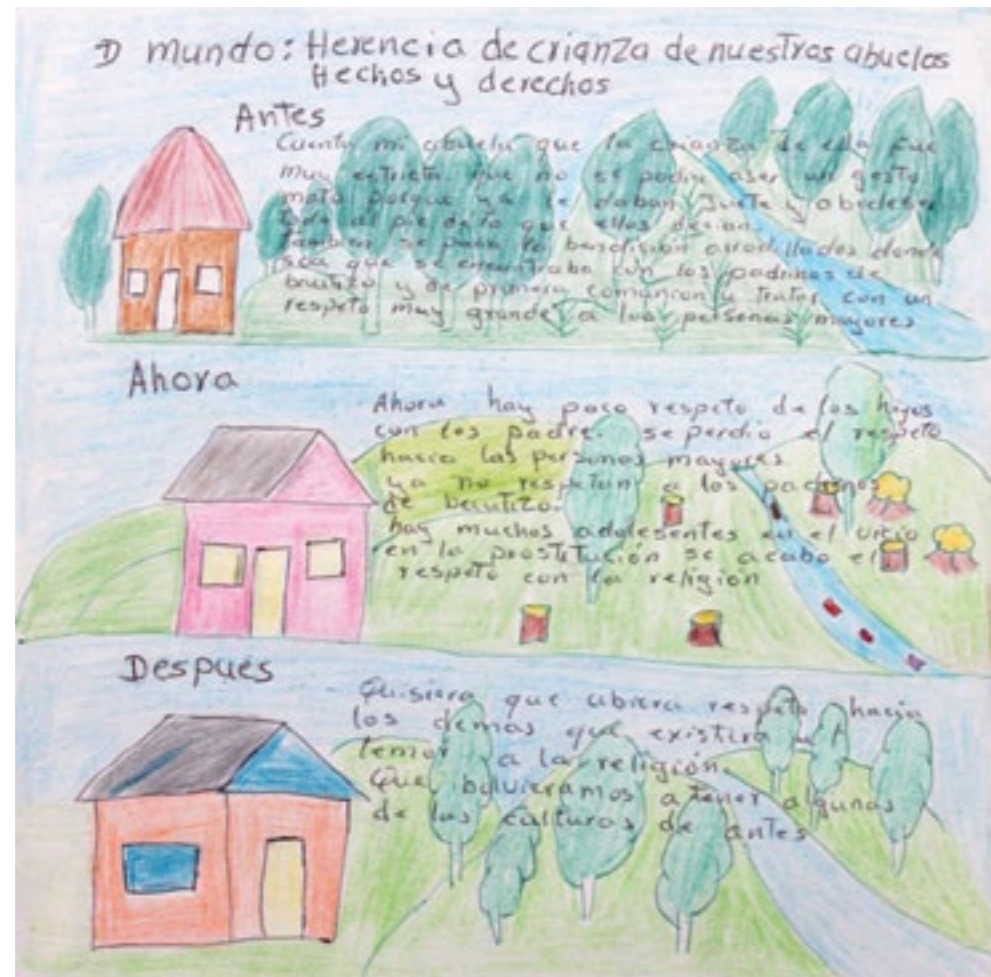 D mundo: Herencia de crianza de nuestros abuelos
Hechos y derechos
Antes
Cuenta mi abuela que la crianza de ella fue
muy estricta que no se podia aser un gesto
malo porque ya le daban Juete y obedeser
todo al pie de lo que ellos decian.
Tambien se pedia la bendision arrodillados donde
sea que se encontraba con los padrinos de
bautizo y de primera comunion y tratar con un
respeto muy grande a las personas mayores
Ahora
Ahora hay poco respeto de los hijos
con los padre. se perdio el respeto
hacia las personas mayores
ya no respetan a los padrinos
de bautizo.
hay muchos adolesentes en el vicio
en la prostitución se acabo el
respeto con la religion
Despues
Quisiera que ubiera respeto hacia
los demas que existira
temor a la religión.
Que bolvieramos a tener algunas
de las culturas de antes